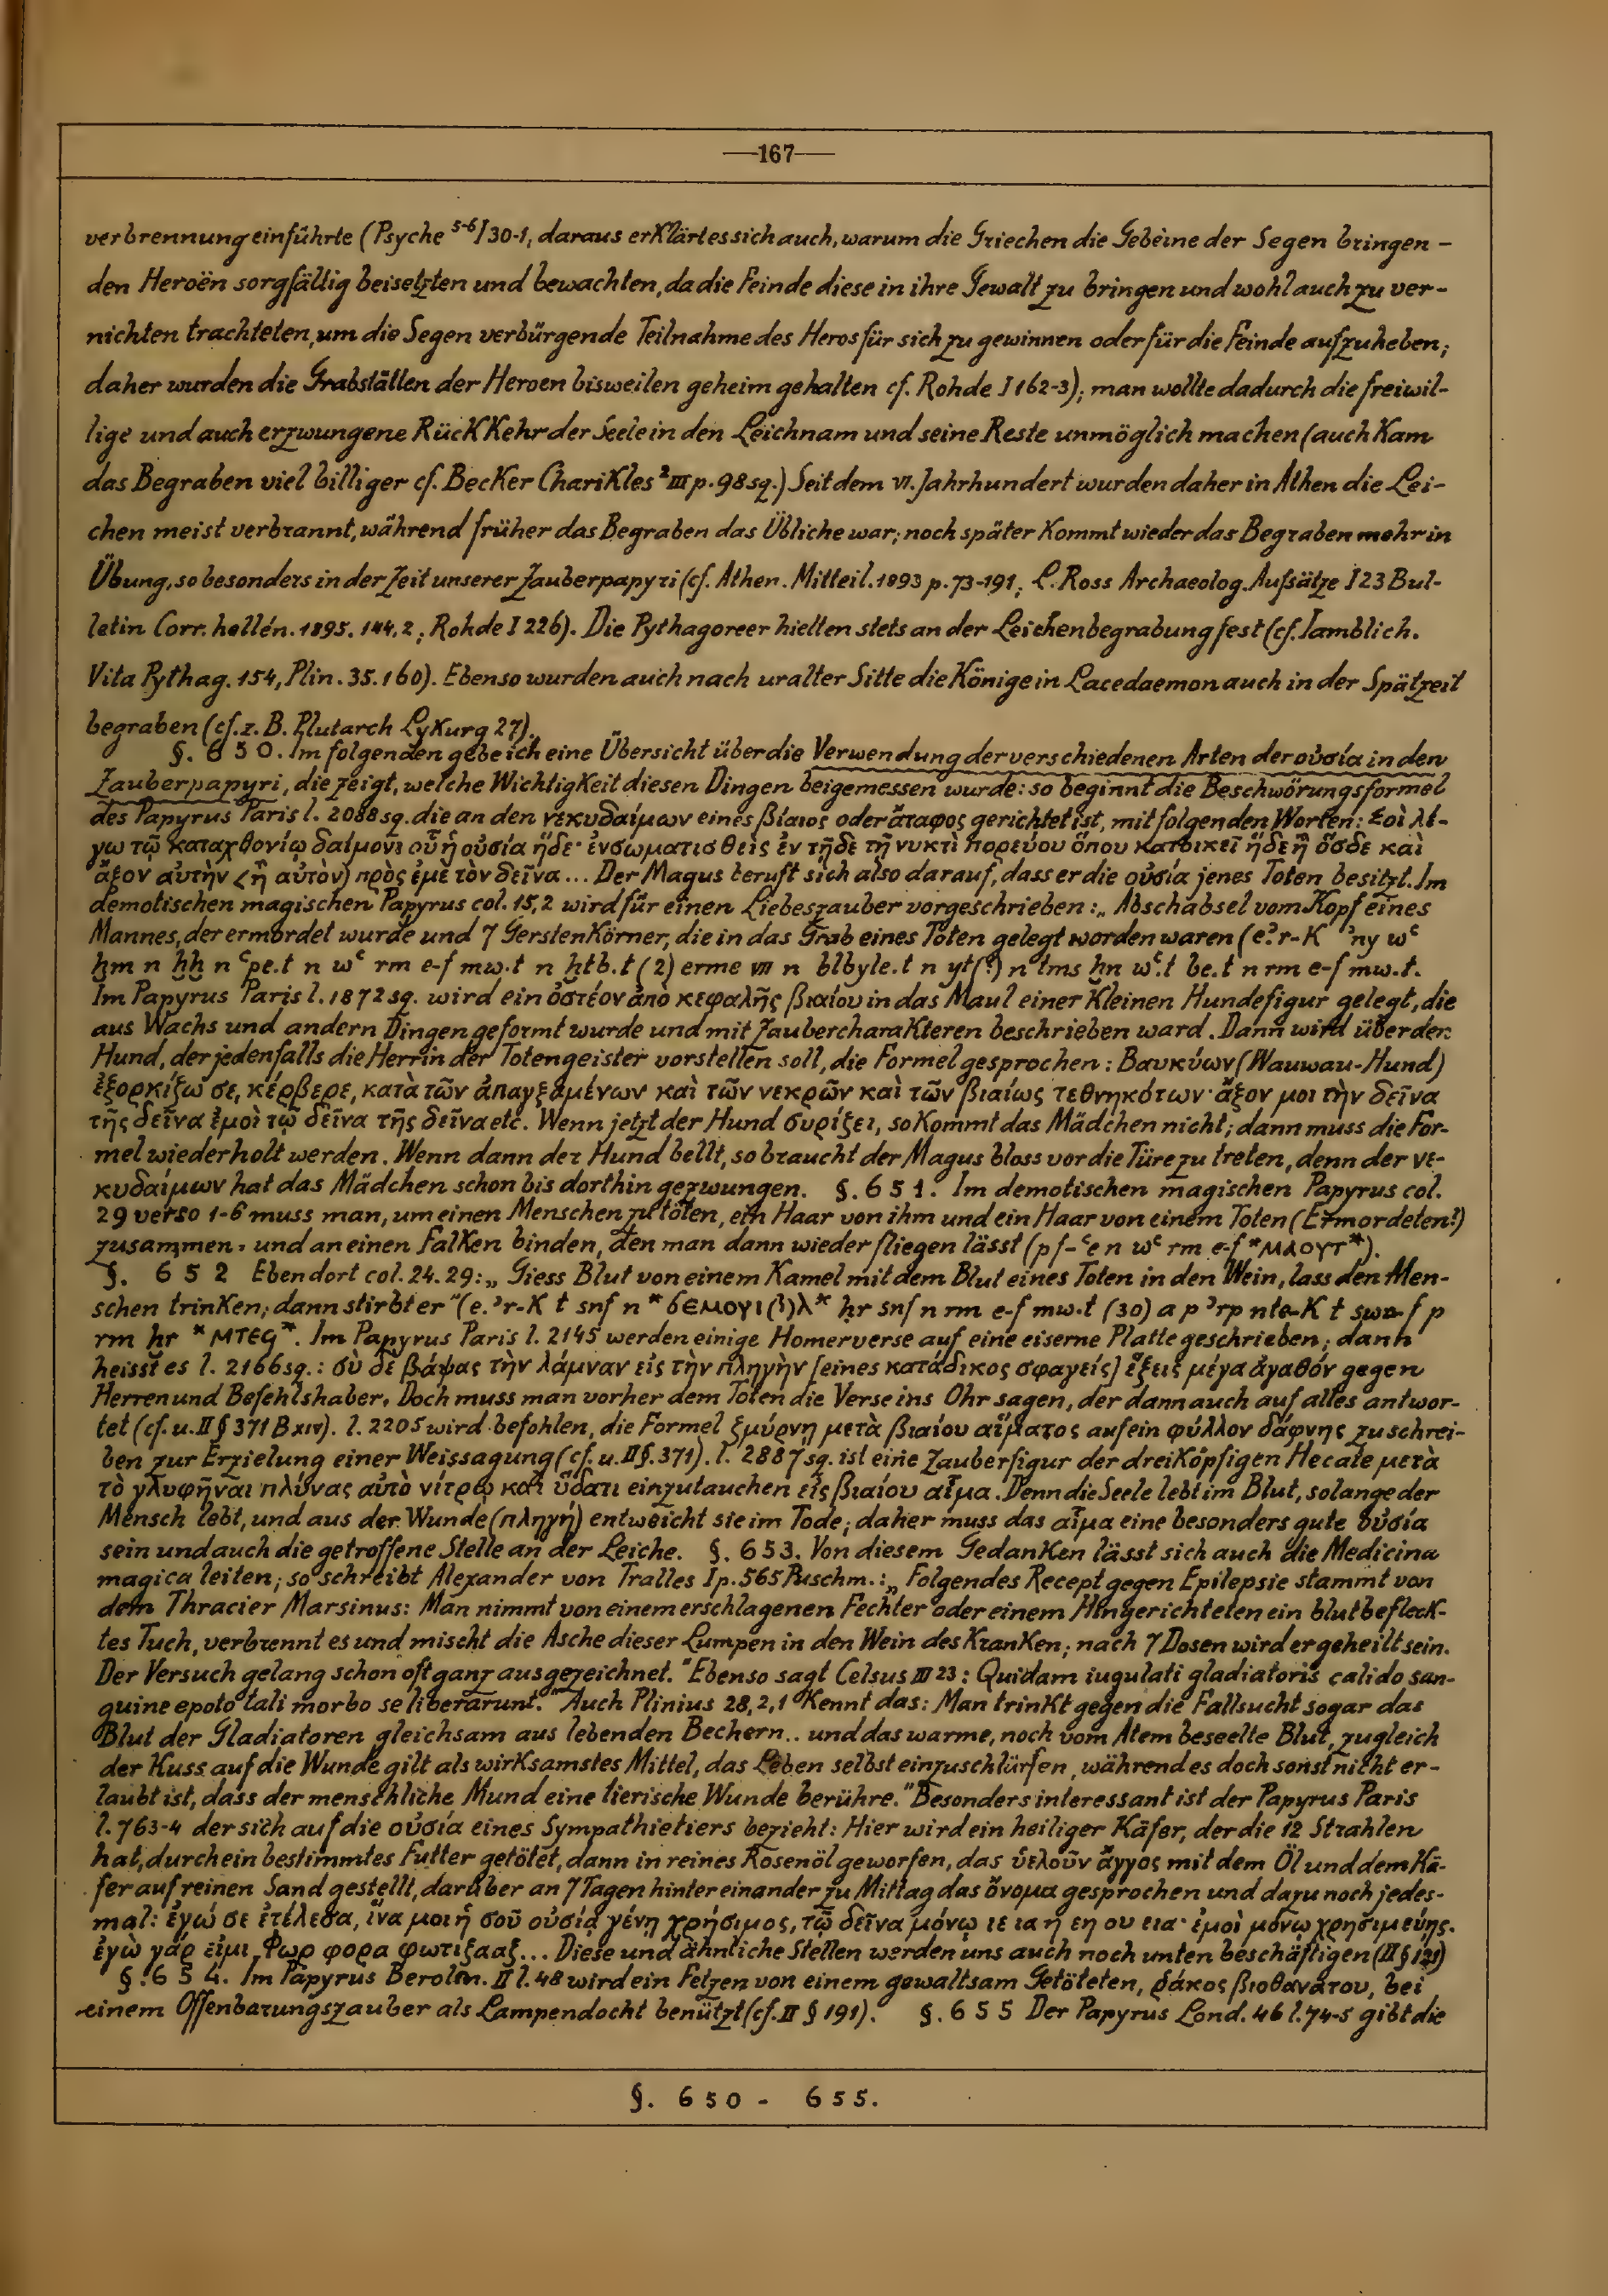 —167—
verbrennung einführte (Psyche 5-6 I 30-1, daraus erklärt es sich auch, warum die Griechen die Gebeine der Segen bringen-
den Heroën sorgfältig beisetzten und bewachten, da die Feinde diese in ihre Gewalt zu bringen und wohl auch zu ver-
nichten trachteten, um die Segen verbürgende Teilnahme des Heros für sich zu gewinnen oder für die Feinde aufzuheben;
daher wurden die Grabstätten der Heroen bisweilen geheim gehalten cf. Rohde I 162-3); man wollte dadurch die freiwil-
lige und auch erzwungene Rückkehr der Seele in den Leichnam und seine Reste unmöglich machen (auch kam
das Begraben viel billiger cf. Becker Charikles ² III p. 98 sq.) Seit dem VI. Jahrhundert wurden daher in Athen die Lei-
chen meist verbrannt, während früher das Begraben das Übliche war; noch später kommt wieder das Begraben mehr in
Übung, so besonders in der Zeit unserer Zauberpapyri (cf. Athen. Mitteil. 1893 p. 73-191; L. Ross Archaeolog. Aufsätze I 23 Bul-
letin Corr. hellén. 1895. 144. 2; Rohde I 226). Die Pythagoreer hielten stets an der Leichenbegrabung fest (cf. Iamblich.
Vita Pythag. 154, Plin. 35. 160). Ebenso wurden auch nach uralter Sitte die Könige in Lacedaemon auch in der Spätzeit
begraben (cf. z. B. Plutarch Lykurg 27).
§. 650. Im folgenden gebe ich eine Übersicht über die Verwendung der verschiedenen Arten der οὐσία in den
Zauberpapyri, die zeigt, welche Wichtigkeit diesen Dingen beigemessen wurde: so beginnt die Beschwörungsformel
des Papyrus Paris l. 2088 sq. die an den νεκυδαίμων eines βίαιος oder ἄταφος gerichtet ist, mit folgenden Worten: Σοὶ λέ-
γω τῷ καταχθονίῳ δαίμονι οὗ ἡ οὐσία ἥδε· ἐνσωματισθεὶς ἐν τῇδε τῇ νυκτὶ πορεύου ὅπου κατοικεῖ ἥδε ἢ ὅσδε καὶ
ἄξον αὐτὴν <ἢ αὐτὸν) πρὸς ἐμὲ τὸν δεῖνα... Der Magus beruft sich also darauf, dass er die οὐσία jenes Toten besitzt. Im
demotischen magischen Papyrus col. 15,2 wird für einen Liebeszauber vorgeschrieben: „Abschabsel vom Kopf eines
Mannes, der ermordet wurde und 7 Gerstenkörner, die in das Grab eines Toten gelegt worden waren (e.ʾr-K ʾny wʿ
ẖm n ẖẖ n ʿpe.t n wʿ rm e-f mw.t n ḫtb.t (2) erme VII n blbyle.t n yt(?) n tms ẖn wʿ.t be.t n rm e-f mw.t.
Im Papyrus Paris l. 1872 sq. wird ein ὀστέον ἀπὸ κεφαλῆς βιαίου in das Maul einer kleinen Hundefigur gelegt, die
aus Wachs und andern Dingen geformt wurde und mit Zaubercharakteren beschrieben ward. Dann wird über den
Hund, der jedenfalls die Herrin der Totengeister vorstellen soll, die Formel gesprochen: Βαυκύων (Wauwau-Hund)
ἐξορκίζω σε, κέρβερε, κατὰ τῶν ἀπαγξαμένων καὶ τῶν νεκρῶν καὶ τῶν βιαίως τεθνηκότων· ἄξον μοι τὴν δεῖνα
τῆς δεῖνα ἐμοὶ τῷ δεῖνα τῆς δεῖνα etc. Wenn jetzt der Hund συρίζει, so kommt das Mädchen nicht; dann muss die For-
mel wiederholt werden. Wenn dann der Hund bellt, so braucht der Magus bloss vor die Türe zu treten, denn der νε-
κυδαίμων hat das Mädchen schon bis dorthin gezwungen. §. 651. Im demotischen magischen Papyrus col.
29 verso 1-6 muss man, um einen Menschen zu töten, ein Haar von ihm und ein Haar von einem Toten (Ermordeten?)
zusammen- und an einen Falken binden, den man dann wieder fliegen lässt (pf-ʿe n wʿ rm e-f *ⲙⲁⲟⲩⲧ*).
§. 652 Ebendort col. 24. 29: „Giess Blut von einem Kamel mit dem Blut eines Toten in den Wein, lass den Men-
schen trinken; dann stirbt er" (e.ʾr-K t snf n *ϭⲉⲙⲟⲩⲓ(?)ⲗ* ḥr snf n rm e-f mw.t (30) a p ʾrp nte-K t swe-f p
rm ḫr *ⲙⲧⲉϥ*. Im Papyrus Paris l. 2145 werden einige Homerverse auf eine eiserne Platte geschrieben; dann
heisst es l. 2166 sq.: σὺ δὲ βάψας τὴν λάμναν εἰς τὴν πληγὴν [eines κατάδικος σφαγείς] ἕξεις μέγα ἀγαθόν gegen
Herren und Befehlshaber. Doch muss man vorher dem Toten die Verse ins Ohr sagen, der dann auch auf alles antwor-
tet (cf. u. II § 371 B XIV). l. 2205 wird befohlen, die Formel ζμύρνῃ μετὰ βιαίου αἵματος auf ein φύλλον δάφνης zu schrei-
ben zur Erzielung einer Weissagung (cf. u. II §. 371). l. 2887 sq. ist eine Zauberfigur der dreiköpfigen Hecate μετὰ
τὸ γλυφῆναι πλύνας αὐτὸ νίτρῳ καὶ ὕδατι einzutauchen εἰς βιαίου αἷμα. Denn die Seele lebt im Blut, solange der
Mensch lebt, und aus der Wunde (πληγή) entweicht sie im Tode; daher muss das αἷμα eine besonders gute οὐσία
sein und auch die getroffene Stelle an der Leiche. §. 653. Von diesem Gedanken lässt sich auch die Medicina
magica leiten; so schreibt Alexander von Tralles I p. 565 Puschm.: „Folgendes Recept gegen Epilepsie stammt von
dem Thracier Marsinus: Man nimmt von einem erschlagenen Fechter oder einem Hingerichteten ein blutbefleck-
tes Tuch, verbrennt es und mischt die Asche dieser Lumpen in den Wein des Kranken; nach 7 Dosen wird er geheilt sein.
Der Versuch gelang schon oft ganz ausgezeichnet." Ebenso sagt Celsus III 23: Quidam iugulati gladiatoris calido san-
guine epoto tali morbo se liberarunt." Auch Plinius 28, 2, 1 kennt das: Man trinkt gegen die Fallsucht sogar das
Blut der Gladiatoren gleichsam aus lebenden Bechern.. und das warme, noch vom Atem beseelte Blut, zugleich
der Kuss auf die Wunde gilt als wirksamstes Mittel, das Leben selbst einzuschlürfen, während es doch sonst nicht er-
laubt ist, dass der menschliche Mund eine tierische Wunde berühre." Besonders interessant ist der Papyrus Paris
l. 763-4 der sich auf die οὐσία eines Sympathietiers bezieht: Hier wird ein heiliger Käfer, der die 12 Strahlen
hat, durch ein bestimmtes Futter getötet, dann in reines Rosenöl geworfen, das ὑελοῦν ἄγγος mit dem Öl und dem Kä-
fer auf reinen Sand gestellt, darüber an 7 Tagen hintereinander zu Mittag das ὄνομα gesprochen und dazu noch jedes-
mal: ἐγώ σε ἐτέλεσα, ἵνα μοι ἡ σοῦ οὐσία γένῃ χρήσιμος, τῷ δεῖνα μόνῳ ιε ια η εη ου εια· ἐμοὶ μόνῳ χρησιμεύῃς.
ἐγὼ γάρ εἰμι Φωρ φορα φωτιζααξ... Diese und ähnliche Stellen werden uns auch noch unten beschäftigen (II § 121)
§. 654. Im Papyrus Berolin. II l. 48 wird ein Fetzen von einem gewaltsam Getöteten, ῥάκος βιοθανάτου, bei
einem Offenbarungszauber als Lampendocht benützt (cf. II § 191). §. 655 Der Papyrus Lond. 46 l. 74-5 gibt die
§. 650 - 655.